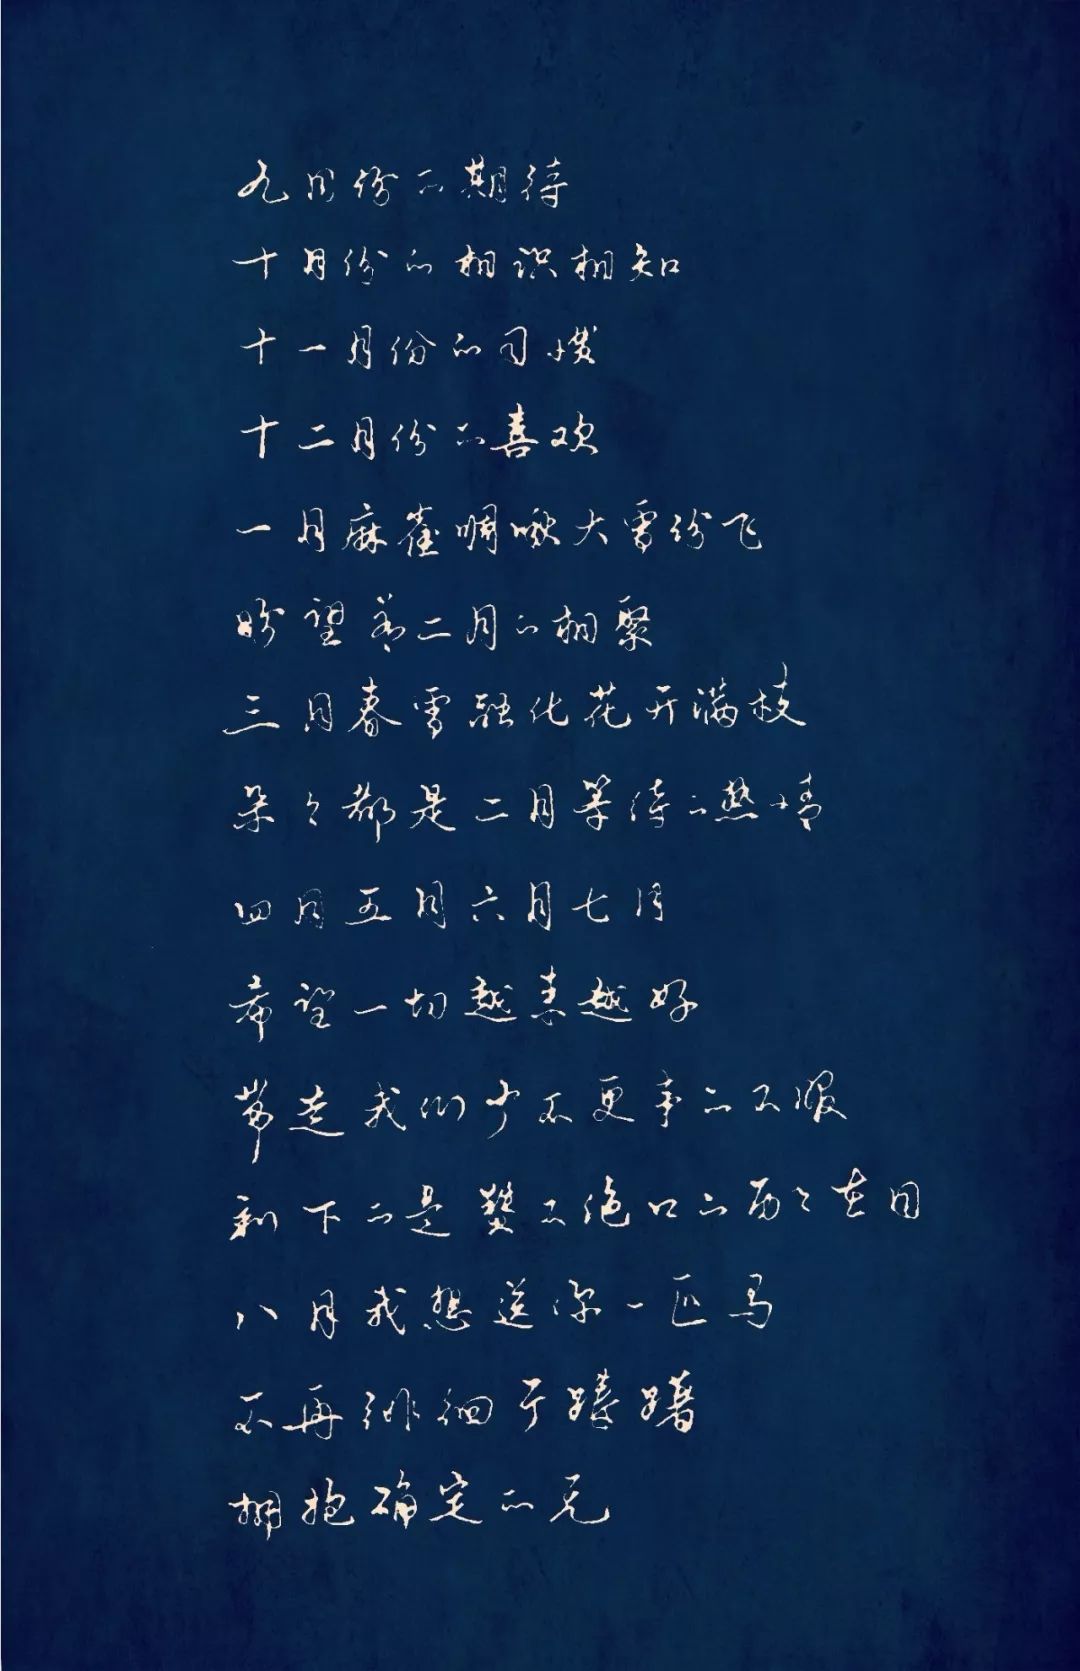 九月份的期待
十月份的相识相知
十一月份的习惯
十二月份的喜欢
一月麻雀啁啾大雪纷飞
盼望着二月的相聚
三月春雪融化花开满枝
朵々都是二月等待的热情
四月五月六月七月
希望一切越来越好
带走我们少不更事的不服
剩下的是赞不绝口的历々在目
八月我想送你一匹马
不再徘徊于踌躇
拥抱确定的光